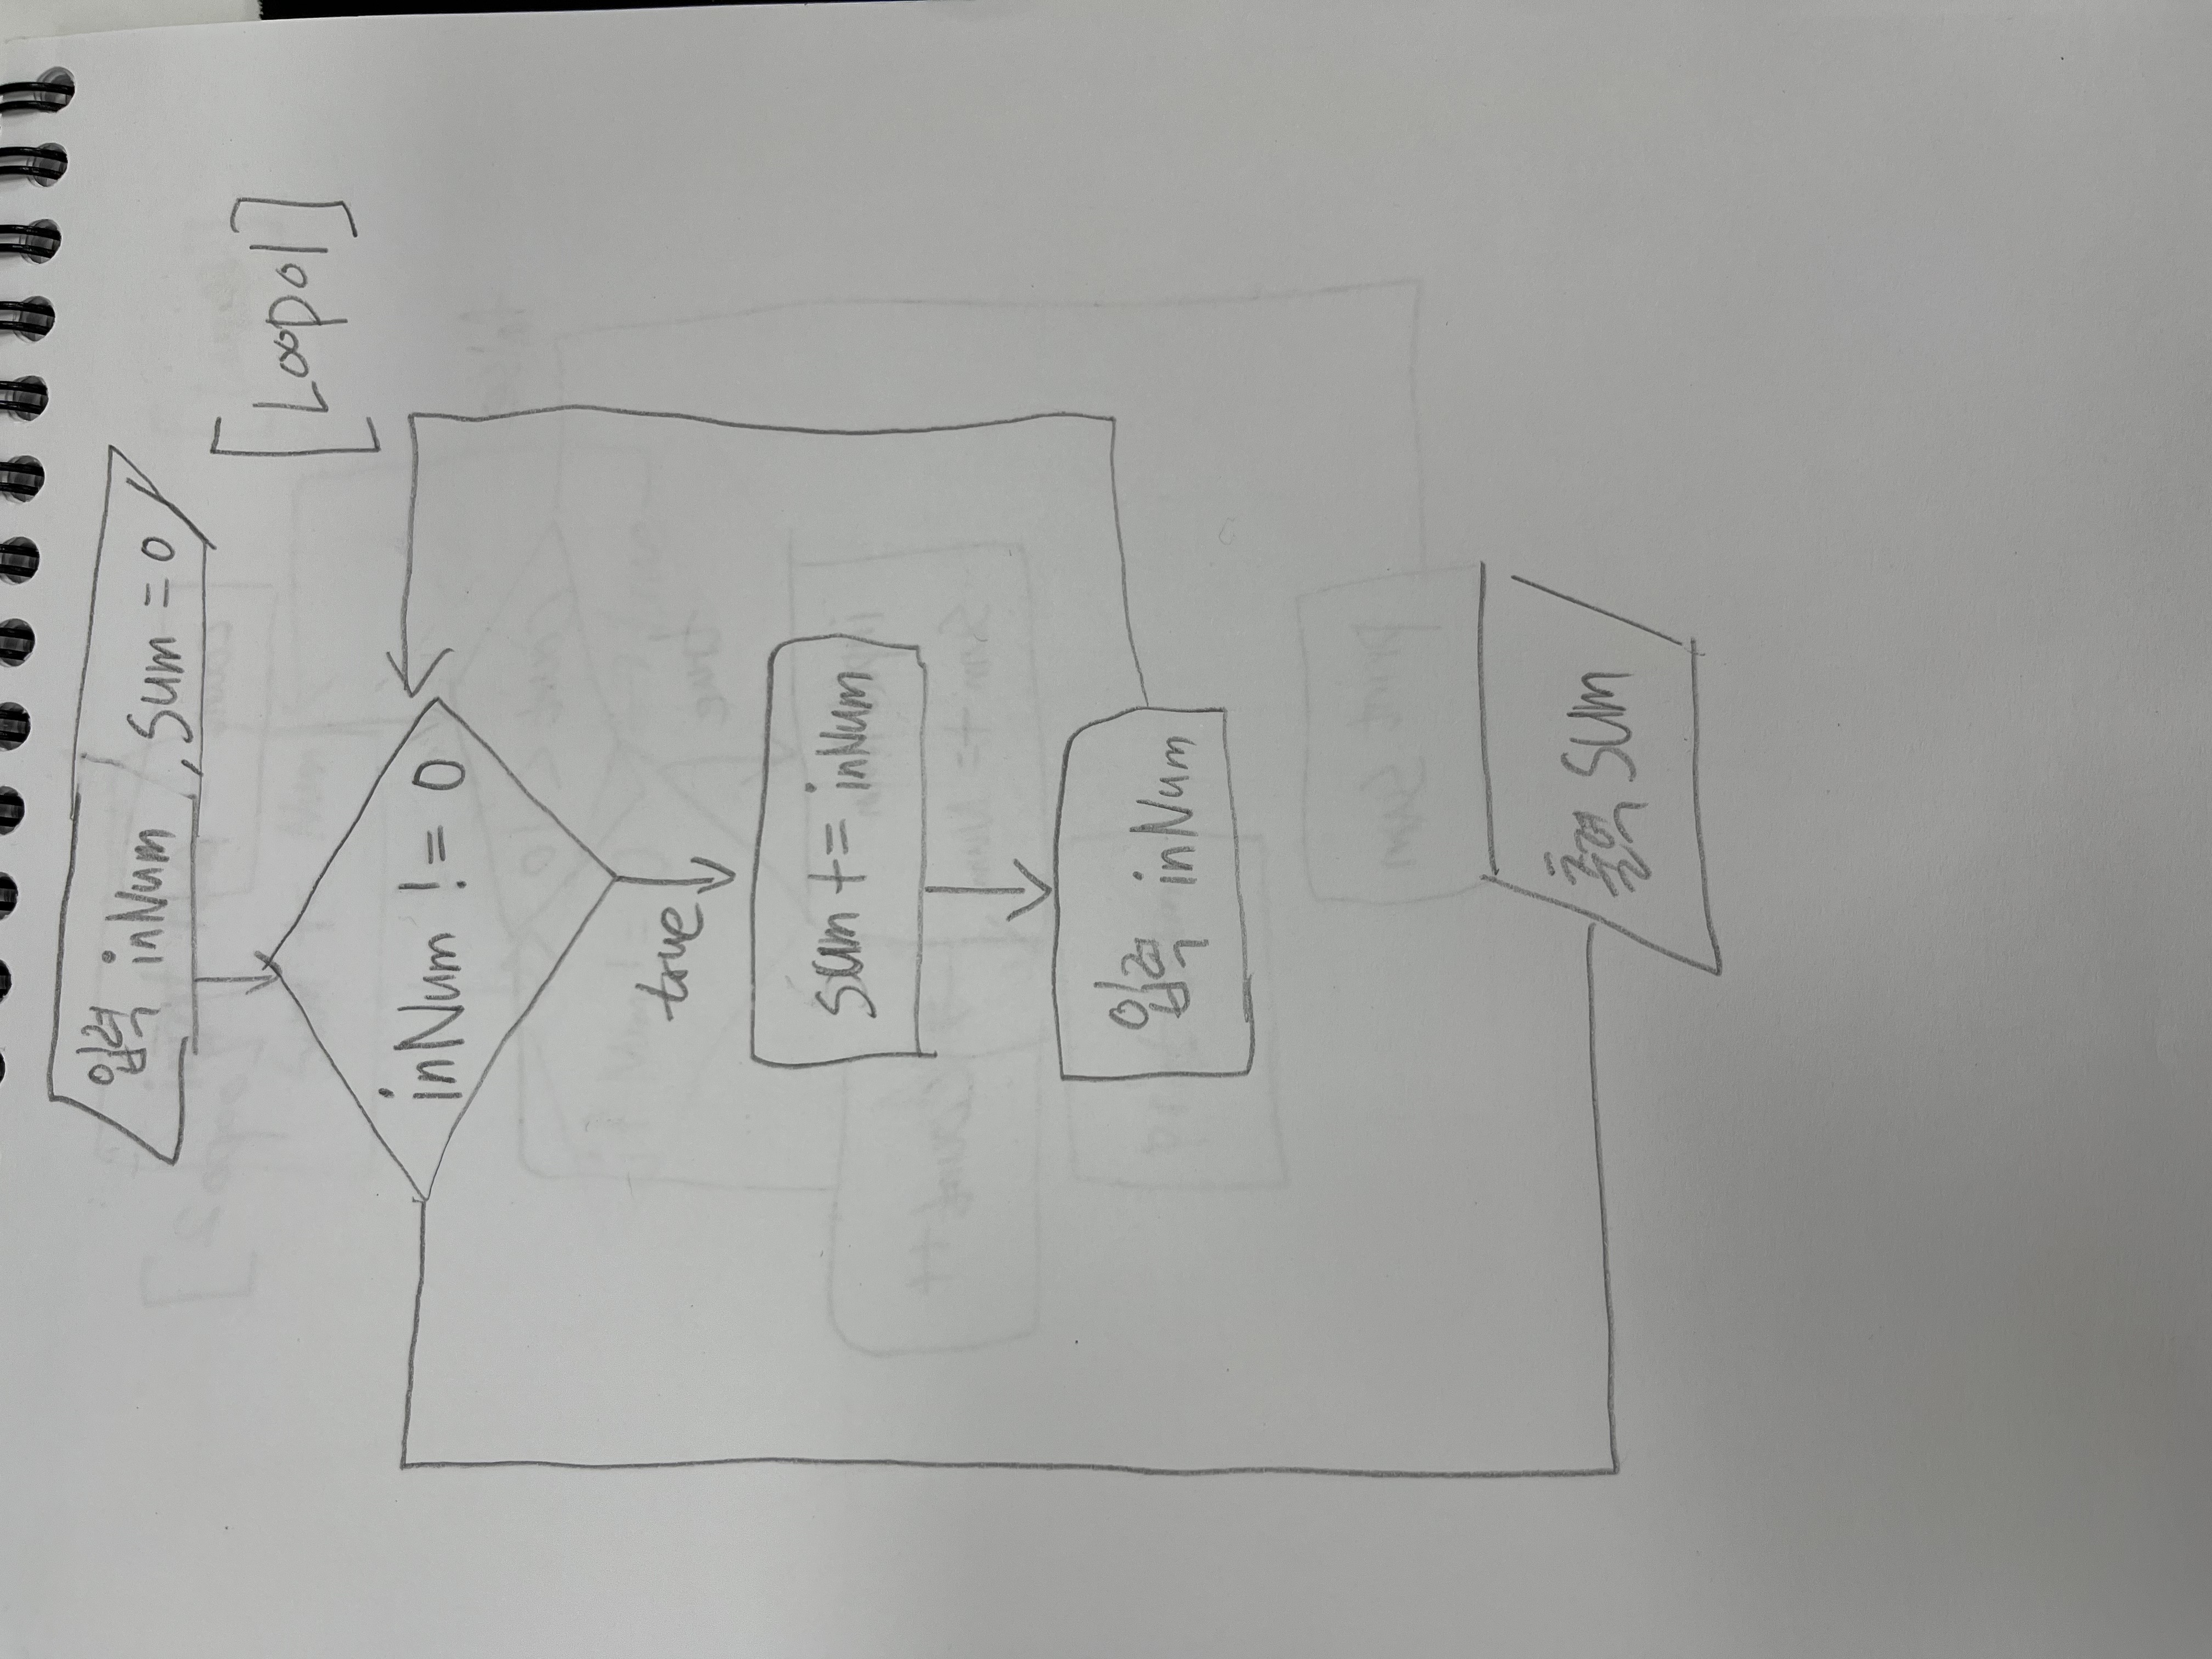 입력 inNum , sum = 0
[Loop01]
inNum != 0
true
sum += inNum
입력 inNum
출력 sum